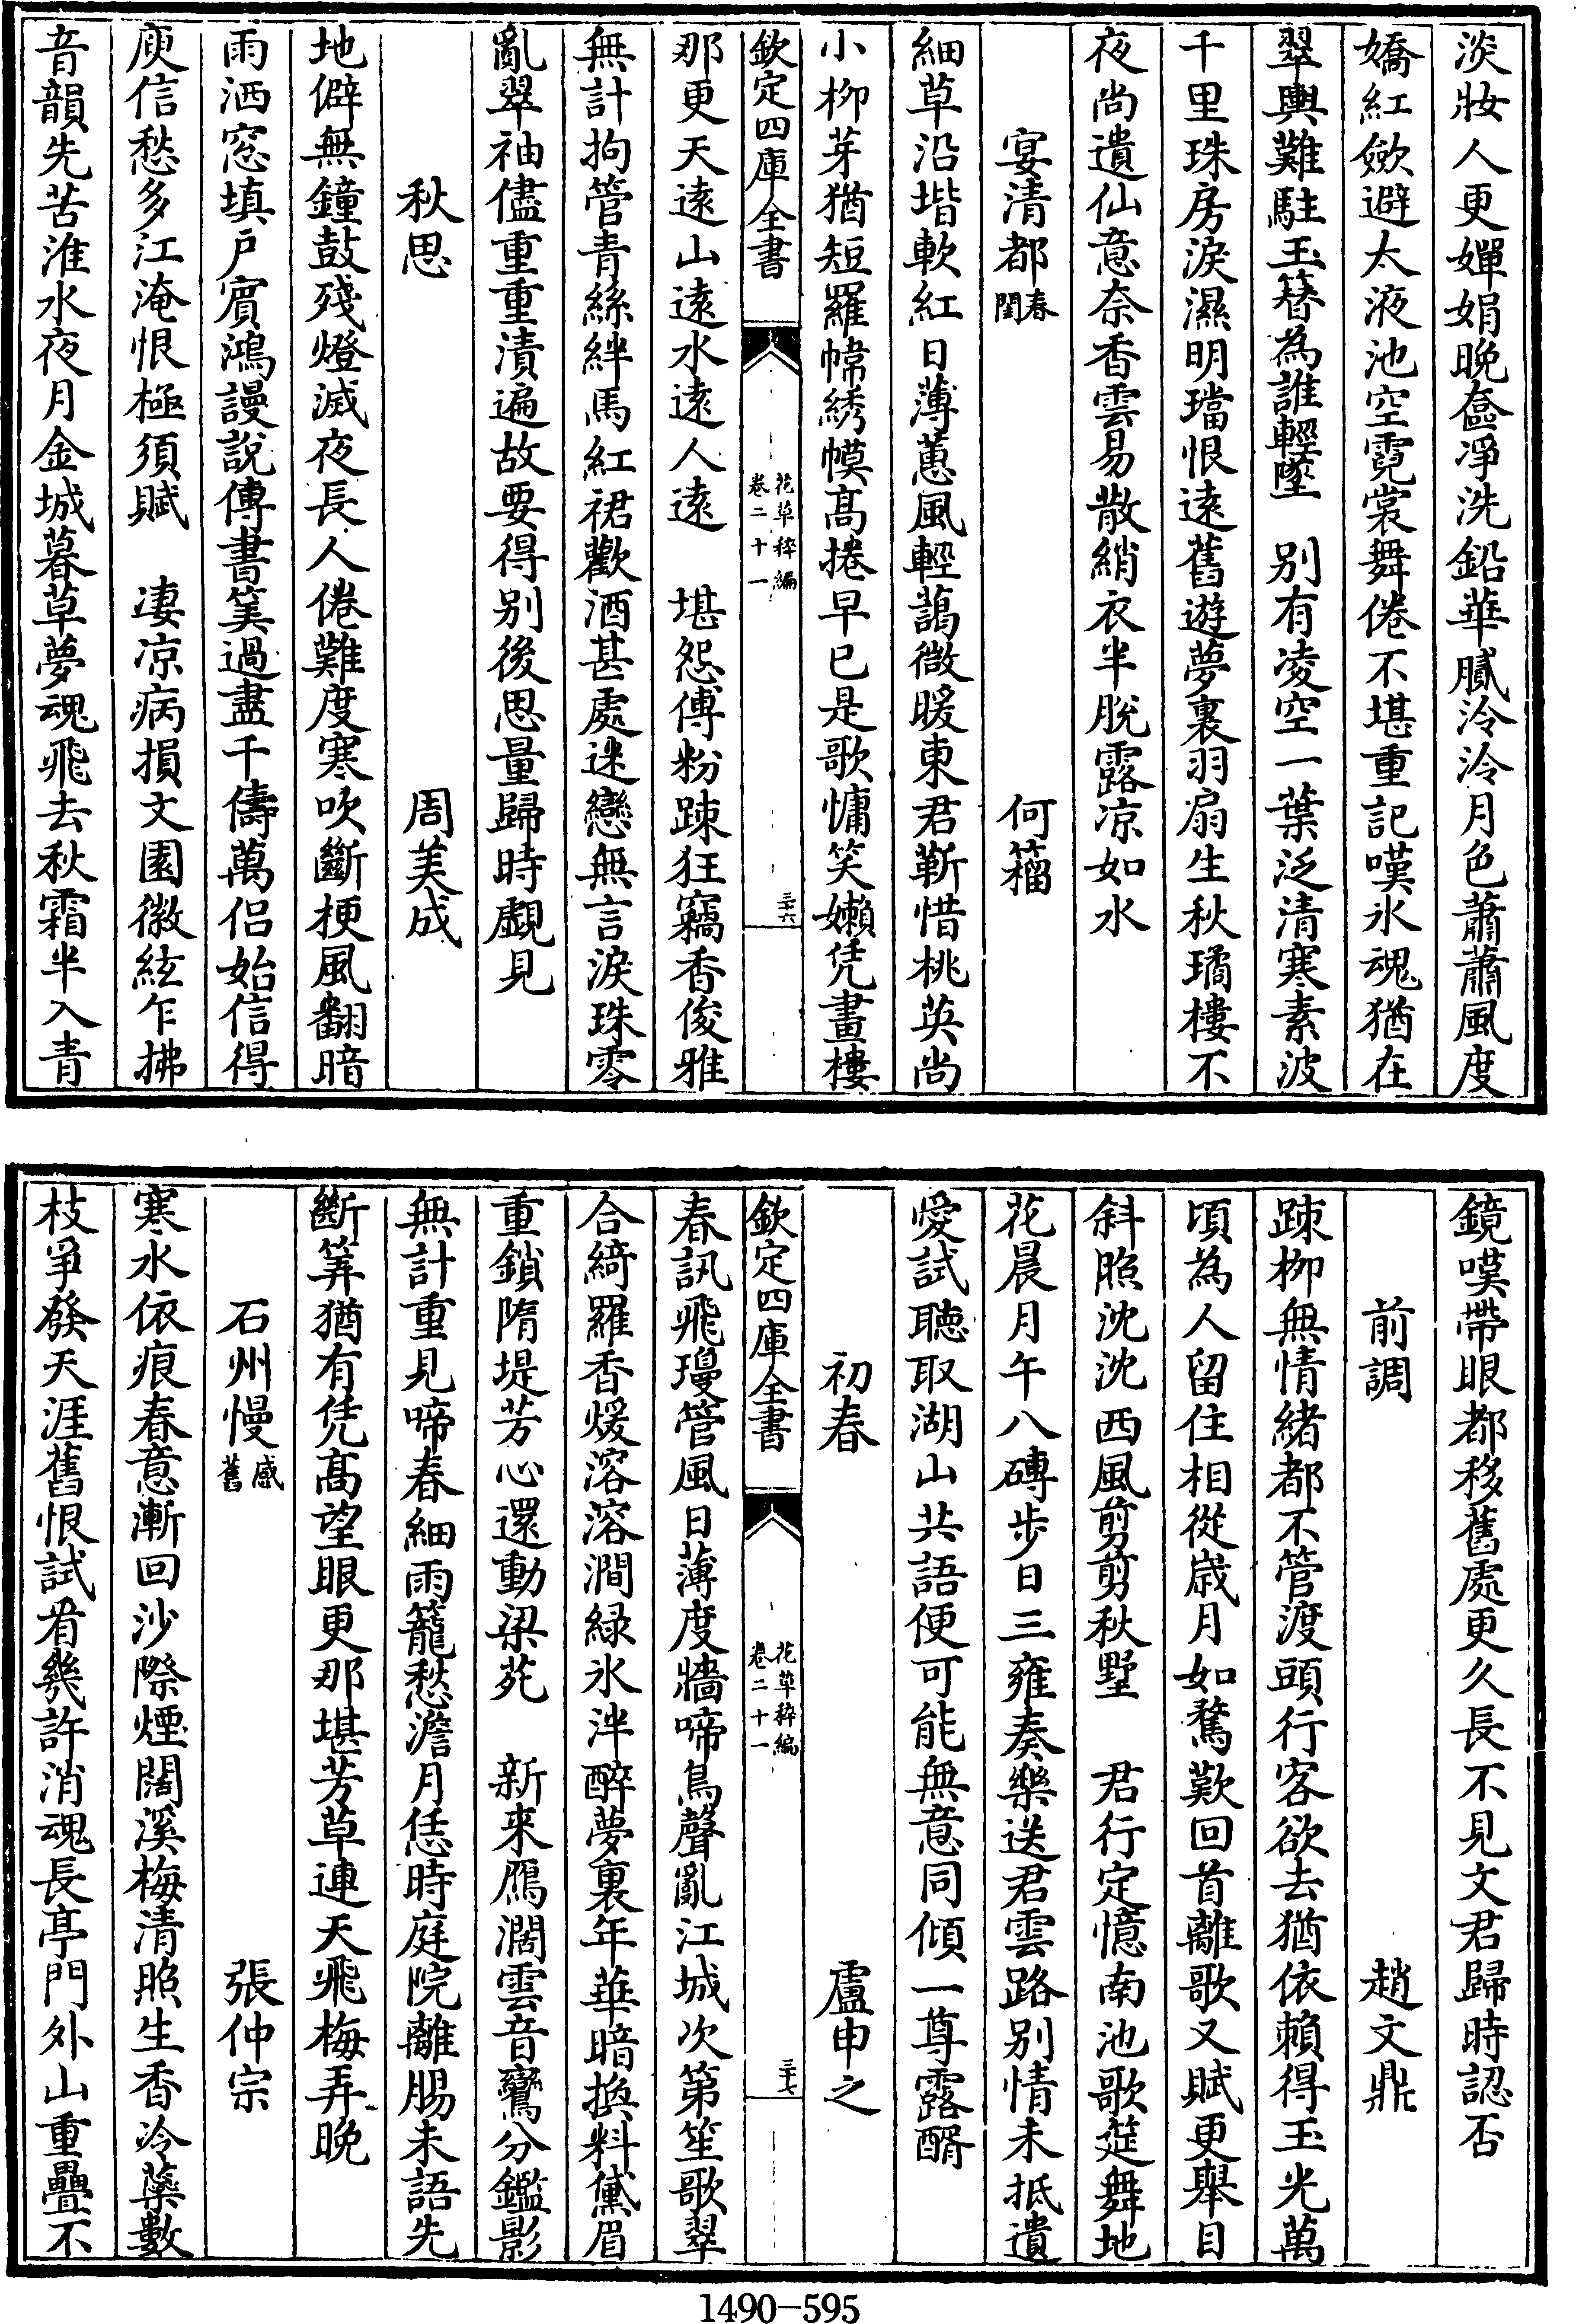 淡妝人更嬋娟晚奩凈洗鉛華膩泠泠月色蕭蕭風度
嬌紅斂避太液池空霓裳舞倦不堪重記嘆氷魂猶在
翠輿難駐玉簪為誰輕墜　别有凌空一葉泛清寒素波
千里珠房淚濕明璫恨遠舊遊夢裏羽扇生秋璚樓不
夜尚遺仙意奈香雲易散綃衣半脫露凉如水
宴清都春閨　何籀
細草沿堦軟紅日薄蕙風輕藹微暖東君靳惜桃英尚
小柳芽猶短羅幃綉幙髙捲早已是歌慵笑嬾凭畫樓
欽定四庫全書　花草稡編卷二十一　三十六
那更天遠山遠水遠人遠　堪怨傅粉踈狂竊香俊雅
無計拘管青絲絆馬紅裙歡酒甚處迷戀無言淚珠零
亂翠袖儘重重漬遍故要得别後思量歸時覷見
秋思　周美成
地僻無鐘鼓殘燈滅夜長人倦難度寒吹斷梗風翻暗
雨洒窓填户賓鴻謾說傳書筭過盡千儔萬侣始信得
庾信愁多江淹恨極須賦　凄凉病損文園徽絃乍拂
音韻先苦淮水夜月金城暮草夢魂飛去秋霜半入青
鏡嘆帶眼都移舊處更久長不見文君歸時認否
前調　趙文鼎
踈柳無情緒都不管渡頭行客欲去猶依賴得玉光萬
頃為人留住相從歲月如鶩歎回首離歌又賦更舉目
斜照沈沈西風剪剪秋墅　君行定憶南池歌筵舞地
花晨月午八磚步日三雍奏樂送君雲路别情未抵遺
愛試聽取湖山共語便可能無意同傾一尊露醑
初春　盧申之
春訊飛瓊管風日薄度牆啼鳥聲亂江城次第笙歌翠
合綺羅香煖溶溶澗緑氷泮醉夢裏年華暗換料黛眉
重鎖隋堤芳心還動梁苑　新来鴈濶雲音鸞分鑑影
無計重見啼春細雨籠愁澹月恁時庭院離腸未語先
斷筭猶有凭髙望眼更那堪芳草連天飛梅弄晚
石州慢感舊　張仲宗
寒水依痕春意漸回沙際煙闊溪梅清照生香冷蘂數
枝爭發天涯舊恨試看幾許消魂長亭門外山重疊不
1490-595